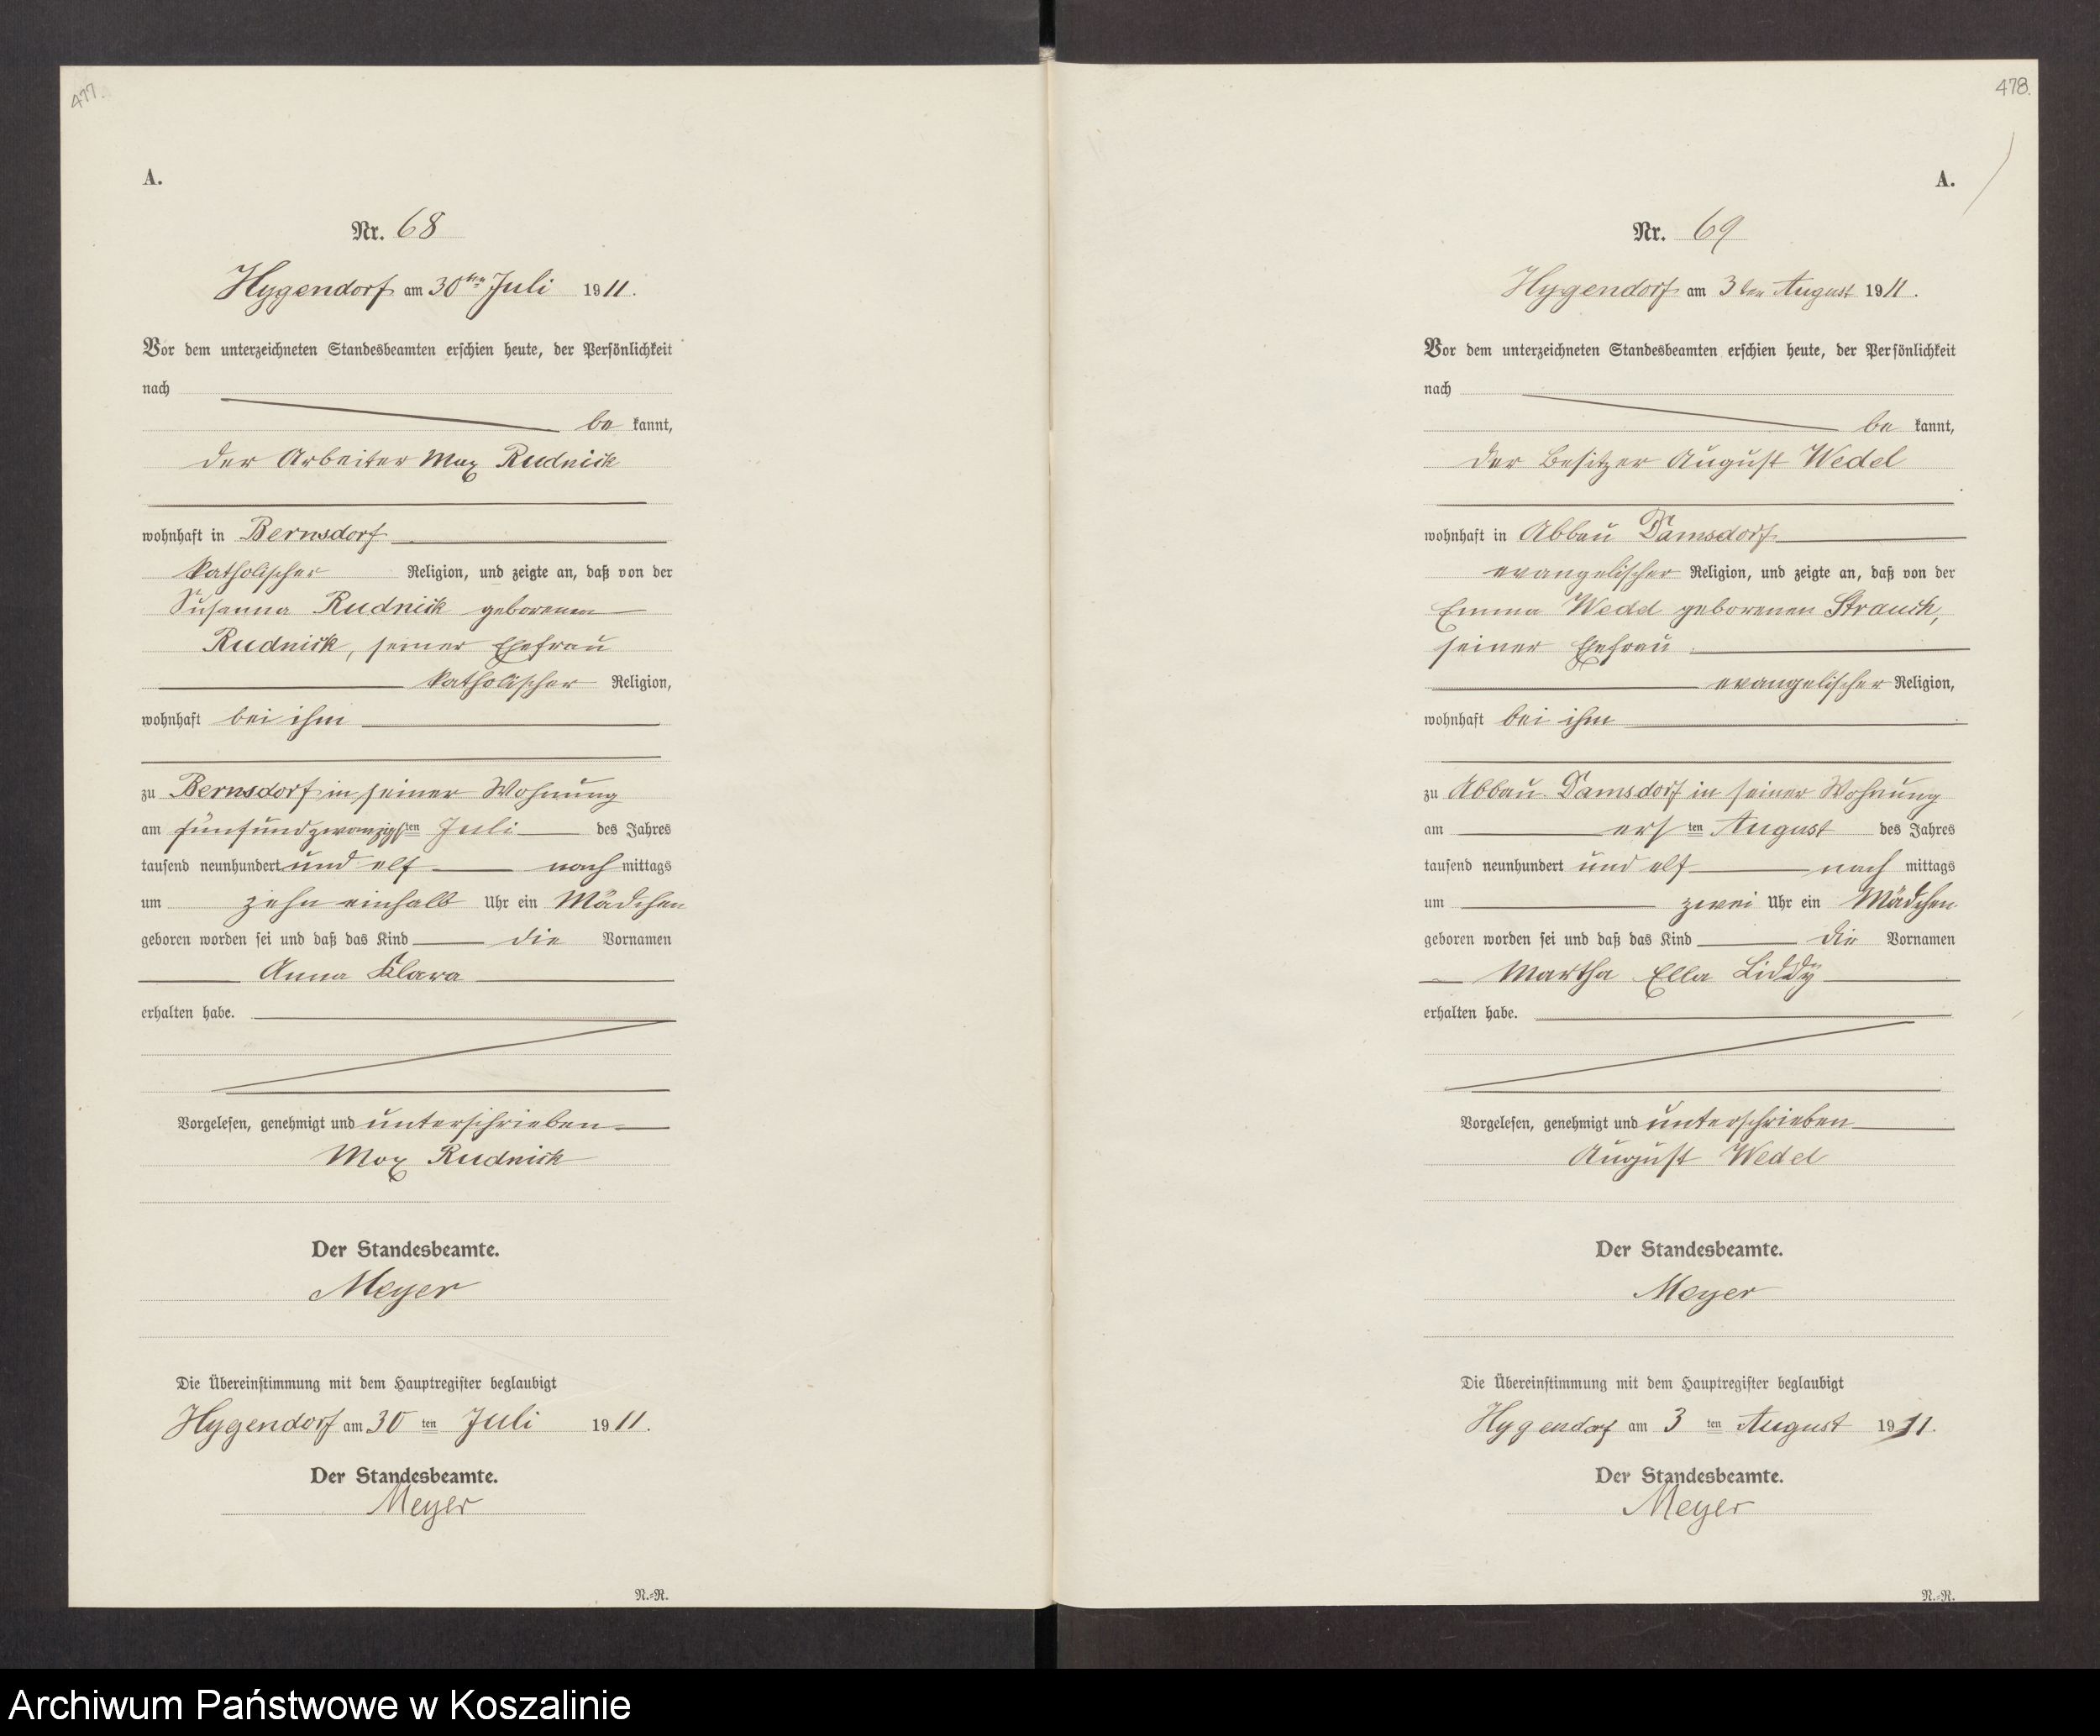 477.
A.
Nr. 68
Hygendorf am 30ten Juli 1911.
Vor dem unterzeichneten Standesbeamten erschien heute, der Persönlichkeit
nach
be kannt,
der Arbeiter Max Rudnick
wohnhaft in Bernsdorf
katholischer Religion, und zeigte an, daß von der
Susanna Rudnick geborenen
Rudnick, seiner Ehefrau
katholischer Religion,
wohnhaft bei ihm
zu Bernsdorf in seiner Wohnung
am fünfundzwanzigsten Juli des Jahres
tausend neunhundert und elf nach mittags
um zehn einhalb Uhr ein Mädchen
geboren worden sei und daß das Kind die Vornamen
Anna Klara
erhalten habe.
Vorgelesen, genehmigt und unterschrieben
Max Rudnick
Der Standesbeamte.
Meyer
Die Übereinstimmung mit dem Hauptregister beglaubigt
Hygendorf am 30 ten Juli 1911.
Der Standesbeamte.
Meyer
N.=R.
478.
A.
Nr. 69
Hygendorf am 3ten August 1911.
Vor dem unterzeichneten Standesbeamten erschien heute, der Persönlichkeit
nach
be kannt,
der Besitzer August Wedel
wohnhaft in Abbau Damsdorf
evangelischer Religion, und zeigte an, daß von der
Emma Wedel geborenen Strauch,
seiner Ehefrau
evangelischer Religion,
wohnhaft bei ihm
zu Abbau Damsdorf in seiner Wohnung
am ersten August des Jahres
tausend neunhundert und elf nach mittags
um zwei Uhr ein Mädchen
geboren worden sei und daß das Kind die Vornamen
Martha Ella Liddy
erhalten habe.
Vorgelesen, genehmigt und unterschrieben
August Wedel
Der Standesbeamte.
Meyer
Die Übereinstimmung mit dem Hauptregister beglaubigt
Hygendorf am 3 ten August 1911.
Der Standesbeamte.
Meyer
N.=R.
Archiwum Państwowe w Koszalinie